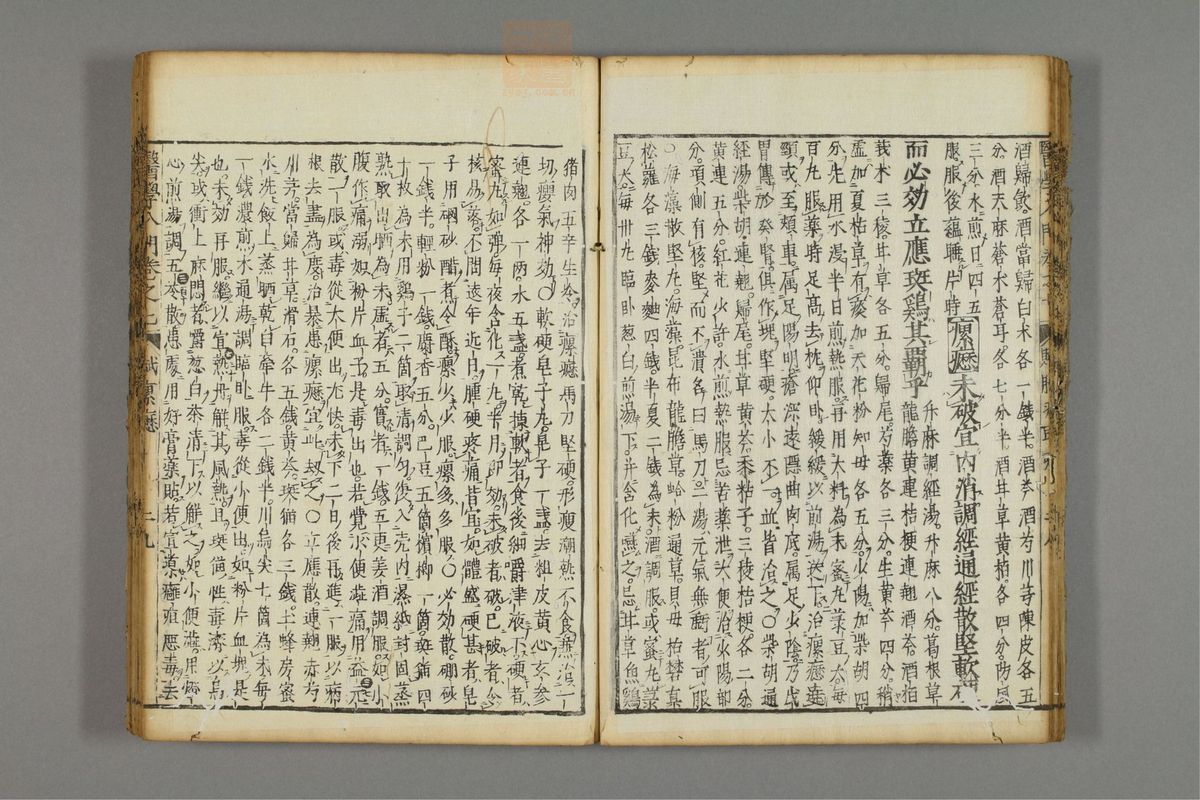 酒歸飲。酒當歸白朮各一錢半。酒芩酒芍川芎陳皮各五
分。酒天麻蒼朮蒼耳各七分半。酒甘草黃柏各四分。防風
三分。水煎日四五
服。服後蘊睡片時 瘰癧未破宜內消調經通經散堅軟硬
而必効立應斑鷄其覇乎 升麻調經湯。升麻八分。葛根草
龍膽黃連桔梗連翹酒芩。酒柏
莪朮三稜甘草各五分。歸尾。芍藥各三分。生黃芩四分。稍
虛加夏枯草。有痰加天花粉知母各五分。少陽加柴胡四
分。先用水浸半日煎熱服。再用大料為末。蜜丸菉豆大每
百丸服藥時足高。去枕仰臥。緩緩以前湯送下。治瘰癧遶
頸或至頰車。屬足陽明。瘡深遠隱曲肉底。屬足少陰。乃戊
胃傳於癸腎。俱作塊堅硬。大小不一。並皆治之。○柴胡通
經湯。柴胡連翹。歸尾。甘草黃芩。黍粘子。三稜桔梗各二分。
黃連五分。紅花少許。水煎熱服。忌苦藥泄大便。治少陽部
分。項側有核堅而不潰。名曰馬刀。二湯。元氣無虧者可服
○海藻散堅丸。海藻昆布龍膽草。蛤粉通草。貝母枯礬眞
松蘿各三錢。麥麯四錢。半夏二錢。為末。酒調服。或蜜丸菉
豆大。每卅丸。臨臥葱白煎湯下。并含化嚥之。忌甘草魚鷄
猪肉五辛生冷。治瘰癧馬刀堅硬。形瘦潮熱。不食兼治一
切癭氣神効。○軟硬皂子丸。皂子一盞去粗皮黃心。玄參
連翹。各一兩。水五盞。煮乾。揀軟者。食後細嚼津液下。硬者。
蜜丸如彈。每夜含化一丸。半月卽効。未破者破。已破者合
核易落。不問遠年近日。腫硬疼痛皆宜。如體盛硬甚者。皂
子用硇砂醋煮令酥。瘰少少服。瘰多多服。○必効散。硼砂
一錢半。輕粉一錢。麝香五分。巴豆五箇檳榔一箇。斑猫四
十枚為末。用鷄子二箇取清調勻。後入壳內。濕紙封固蒸
熟取出晒為末。虛者五分。實者一錢。五更姜酒調服。如小
腹作痛溺如粉片血子。是毒出也。若覺小便澁痛用益元
散一服。或毒從大便出尤快。未下二日後再進一服。以病
根去盡為度。治暴患瘰癧宜此刼之。○立應散連翹赤芍
川芎。當歸甘草。滑石各五錢。黃芩。斑猫各三錢。土蜂房蜜
水洗飯上蒸晒乾。白牽牛各二錢半。川烏尖七箇為末。每
一錢濃煎木通湯調臨臥服。毒從小便出。如粉片血塊是
也。未効再服。繼以宣熱丹解其風熱。且斑猫性毒。濟以烏
尖。或衝上麻悶者嚼葱白茶清下以解之。如小便澁。用燈
心煎湯調五苓散。患處用好膏藥貼。若宣癰疽惡毒。去